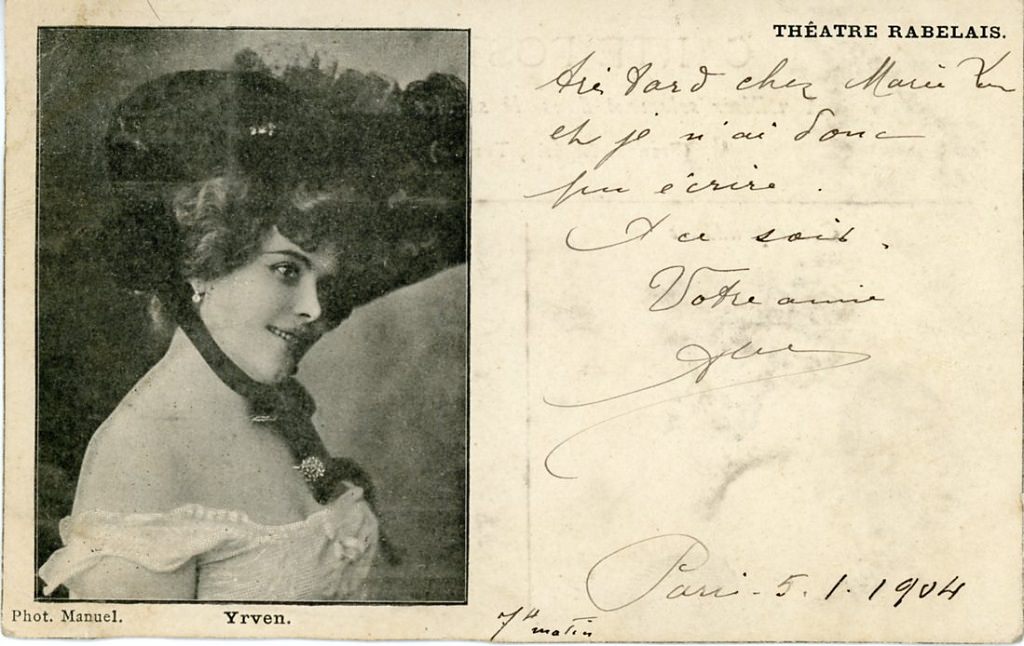 THÉATRE RABELAIS.
très tard chez Marie
et je n'ai donc
pu écrire.
A ce soir.
Votre amie
Paris - 5.1.1904
7h matin
Phot. Manuel.
Yrven.